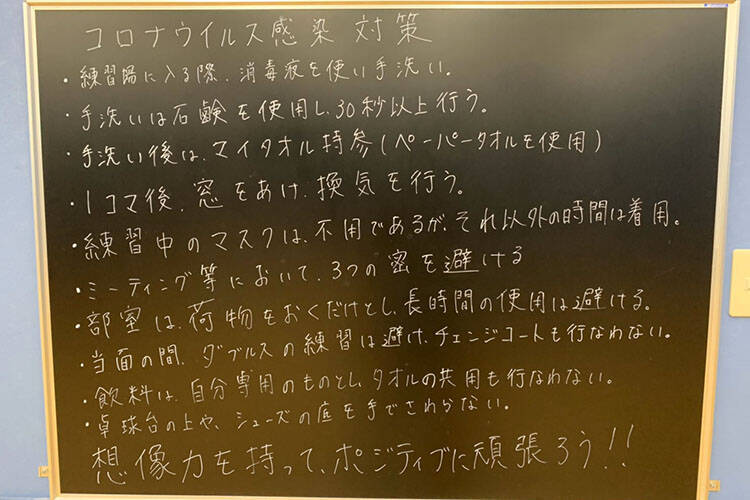 コロナウイルス感染対策
・練習場に入る際、消毒液を使い手洗い。
・手洗いは石鹸を使用し、30秒以上行う。
・手洗い後は、マイタオル持参(ペーパータオルを使用)
・1コマ後、窓をあけ、換気を行う。
・練習中のマスクは、不用であるが、それ以外の時間は着用。
・ミーティング等において、3つの密を避ける
・部室は、荷物をおくだけとし、長時間の使用は避ける。
・当面の間、ダブルスの練習は避け、チェンジコートも行なわない。
・飲料は、自分専用のものとし、タオルの共用も行なわない。
・卓球台の上や、シューズの底を手でさわらない。
想像力を持って、ポジティブに頑張ろう!!